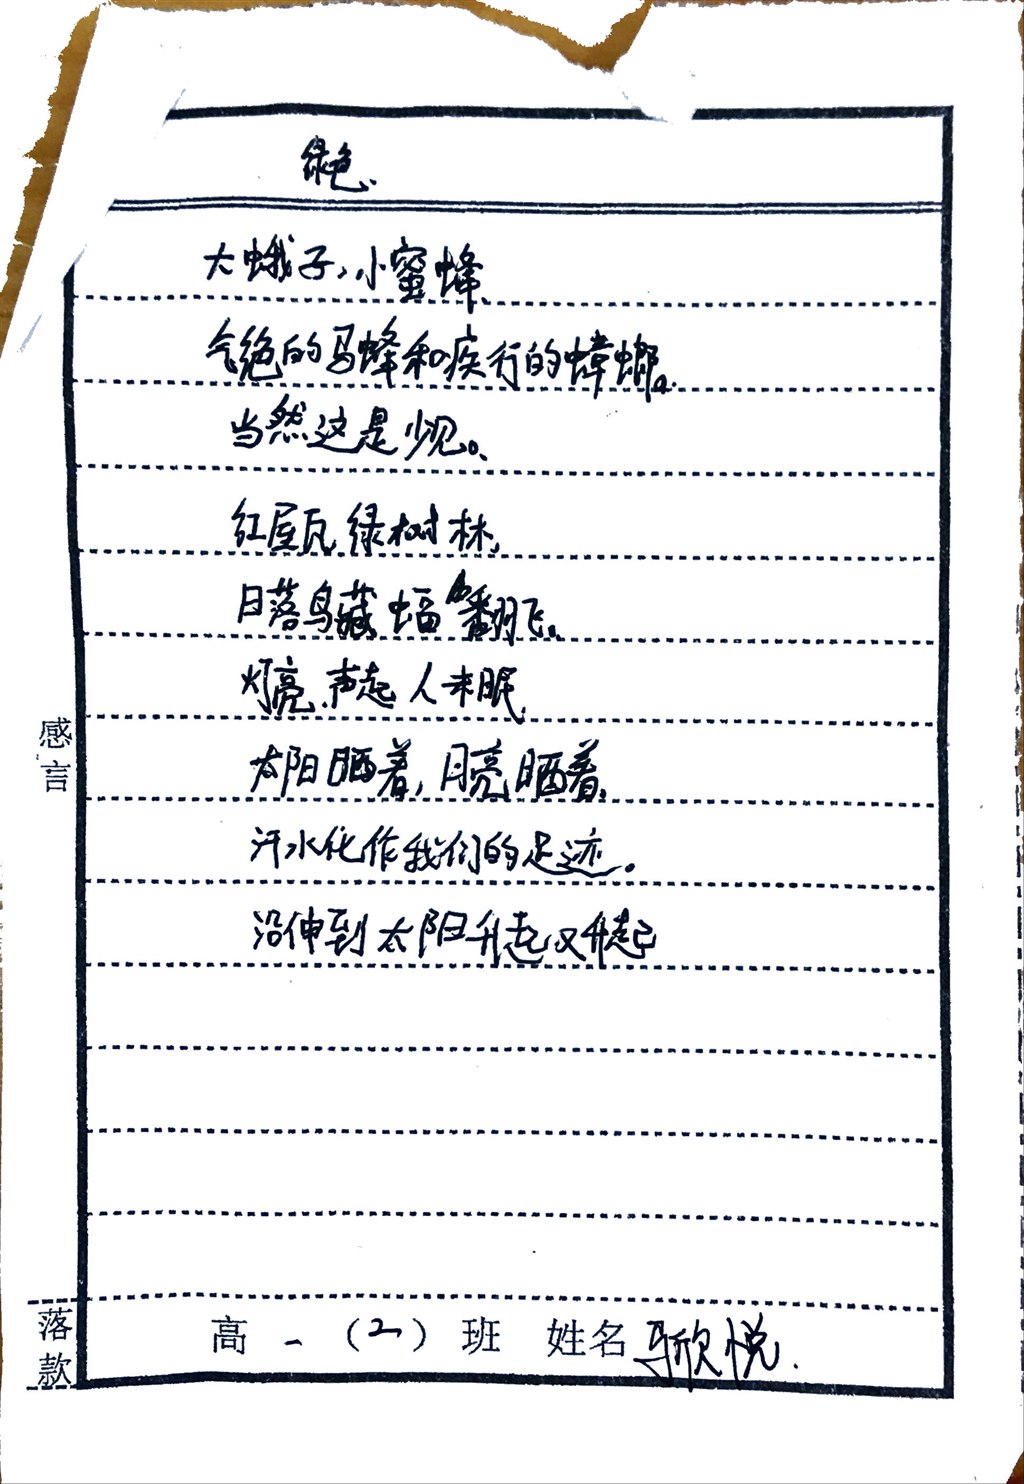 绿色
大蛾子,小蜜蜂
气绝的马蜂和疾行的蟑螂。
当然这是少见。
红屋瓦绿树林,
日落鸟藏蝠翻飞。
灯亮声起人未眠
太阳晒着,月亮晒着,
汗水化作我们的足迹。
沿伸到太阳升起又升起
感言
落款
高一(二)班 姓名 欣悦.